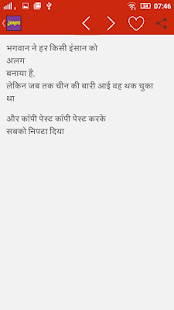 07:46
भगवान ने हर किसी इंसान को
अलग
बनाया है,
लेकिन जब तक चीन की बारी आई वह थक चुका
था
और कांपी पेस्ट कांपी पेस्ट करके
सबको निपटा दिया